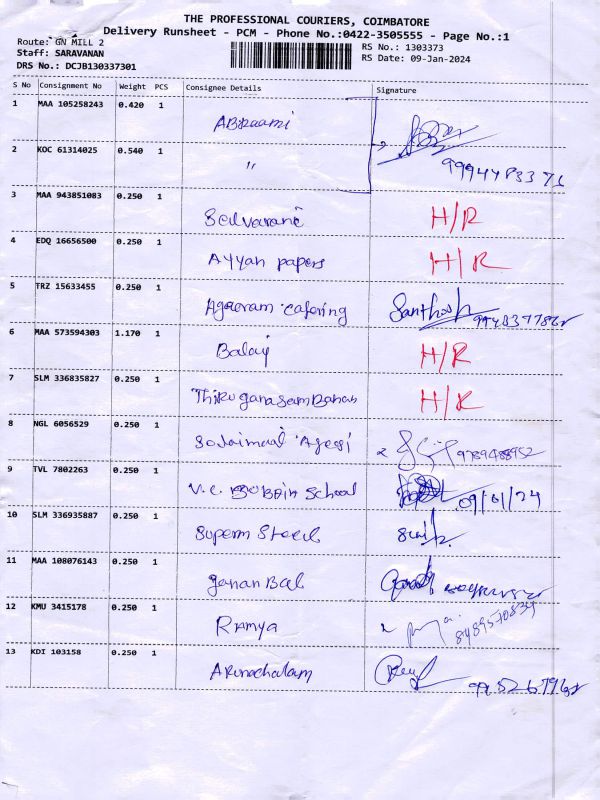 THE PROFESSIONAL COURIERS, COIMBATORE
Delivery Runsheet - PCM - Phone No.:0422-3505555 - Page No.:1
Route: GN MILL 2
RS No.: 1303373
Staff: SARAVANAN
RS Date: 09-Jan-2024
DRS No.: DCJB130337301
S No Consignment No Weight PCS Consignee Details Signature
1 MAA 105258243 0.420 1 ABIRaami
2 KOC 61314025 0.540 1 "
3 MAA 943851083 0.250 1 Selvarani H/R
4 EDQ 16656500 0.250 1 Ayyan papers H/R
5 TRZ 15633455 0.250 1 catering Santhosh
6 MAA 573594303 1.170 1 Balaji H/R
7 SLM 336835827 0.250 1 H/R
8 NGL 6056529 0.250 1 9789488952
9 TVL 7802263 0.250 1 School 09/01/24
10 SLM 336935887 0.250 1 Steel
11 MAA 108076143 0.250 1
12 KMU 3415178 0.250 1 Ramya
13 KDI 103158 0.250 1 Arunachalam